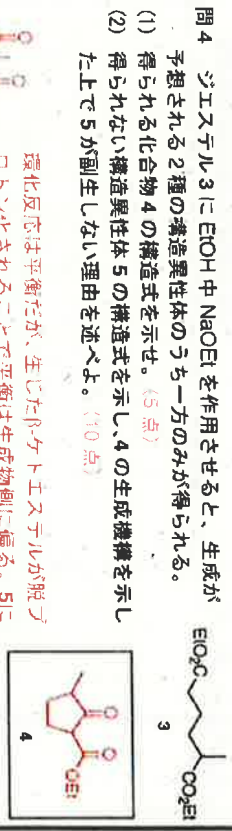 問4 ジエステル3にEtOH中NaOEtを作用させると、生成が
予想される2種の構造異性体のうち一方のみが得られる。
(1) 得られる化合物4の構造式を示せ。(5点)
(2) 得られない構造異性体5の構造式を示し、4の生成機構を示し
た上で5が副生しない理由を述べよ。(10点)
EtO₂C
CO₂Et
3
環化反応は平衡だが、生じたβ-ケトエステルが脱プ
ロトン化されることで平衡は生成物側に偏る。5に
O
O
OEt
4